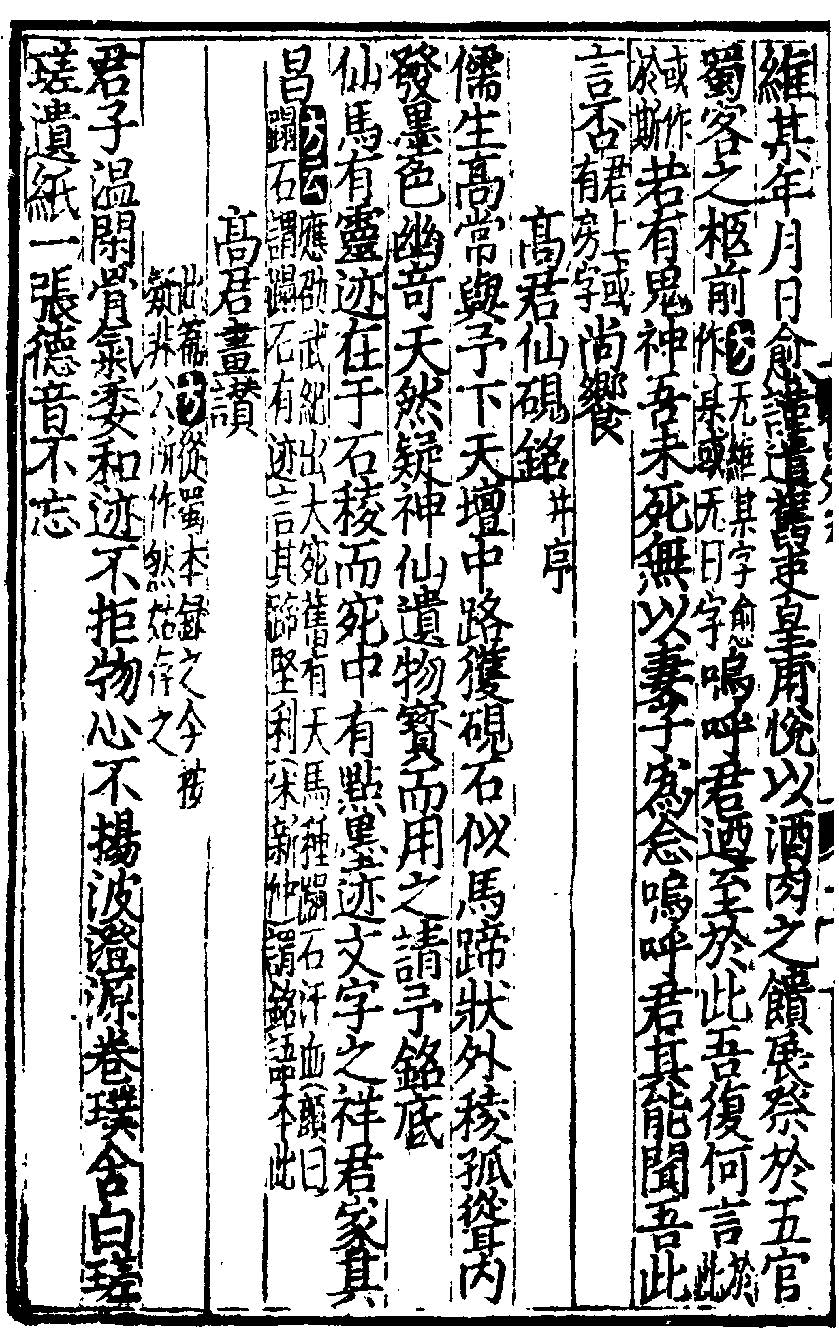 維某年月日愈謹遣舊吏皇甫悅以酒肉之饋展祭於五官
蜀客之柩前方无維某字愈作某或无日字嗚呼君迺至於此吾復何言於此
或作於斯若有鬼神吾未死無以妻子為念嗚呼君其能聞吾此
言否君上或有房字尚饗
高君仙硯銘并序
儒生高常與予下天壇中路獲硯石似馬蹄狀外稜孤聳內
發墨色幽奇天然疑神仙遺物寶而用之請予銘底
仙馬有靈迹在于石稜而宛中有點墨迹文字之祥君家其
昌方云應劭武紀出大宛舊有天馬種蹋石汗血顏曰蹋石謂蹋石有迹言其蹄堅利朱新仲謂銘語本此
高君畫讚
此篇方從蜀本錄之今按疑非公所作然姑存之
君子温閑骨氣委和迹不拒物心不揚波澄源卷璞含白瑳
瑳遺紙一張德音不忘